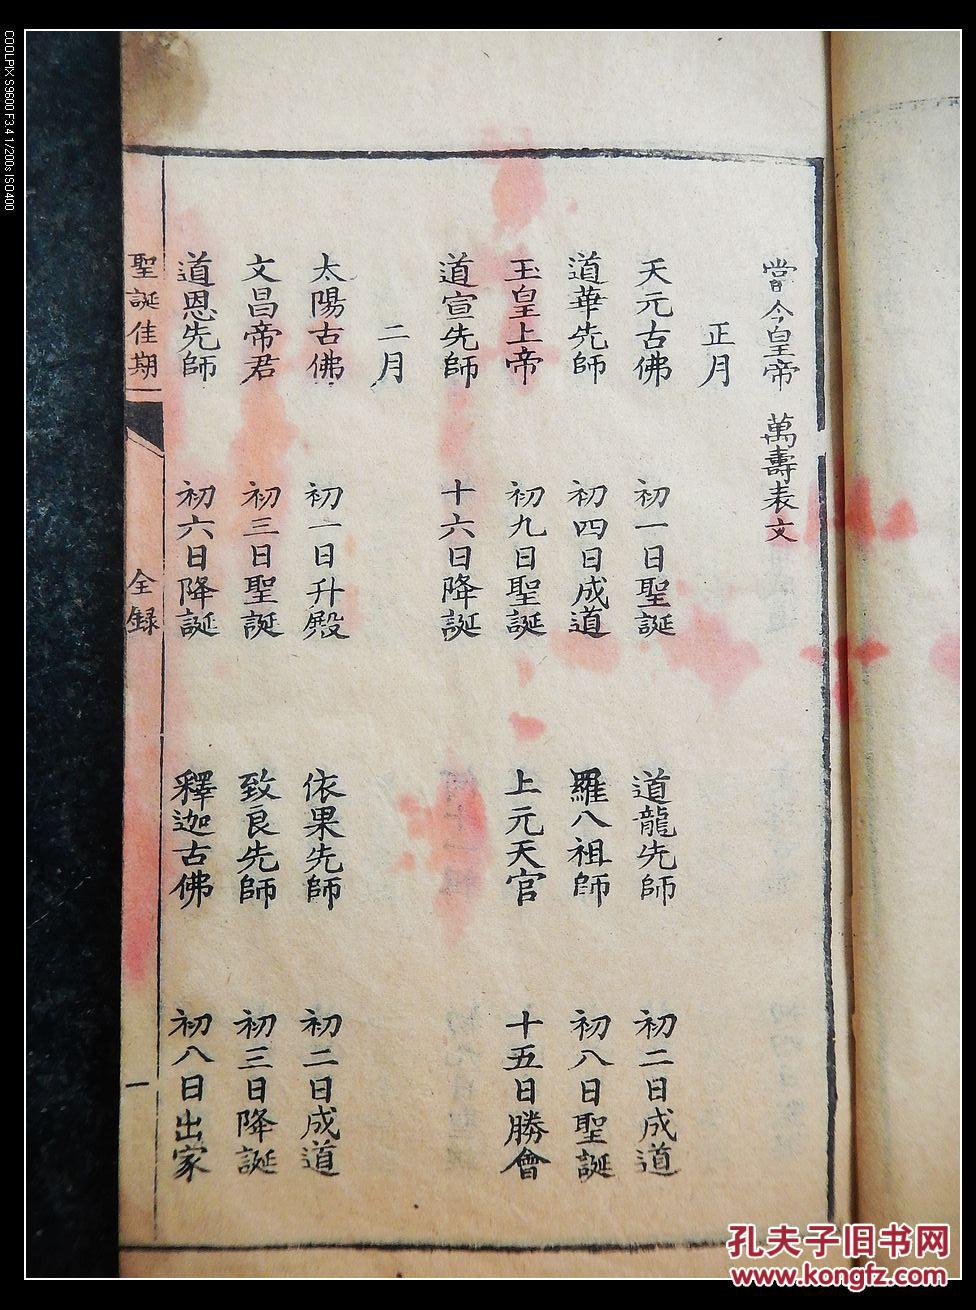 當今皇帝 萬壽表文
正月
天元古佛 初一日聖誕 道龍先師 初二日成道
道華先師 初四日成道 羅八祖師 初八日聖誕
玉皇上帝 初九日聖誕 上元天官 十五日勝會
道宣先師 十六日降誕
二月
太陽古佛 初一日升殿 依果先師 初二日成道
文昌帝君 初三日聖誕 致良先師 初三日降誕
道恩先師 初六日降誕 釋迦古佛 初八日出家
聖誕佳期 全録 一
COOLPIX S9600 F3.4 1/200s ISO400
孔夫子旧书网
www.kongfz.com